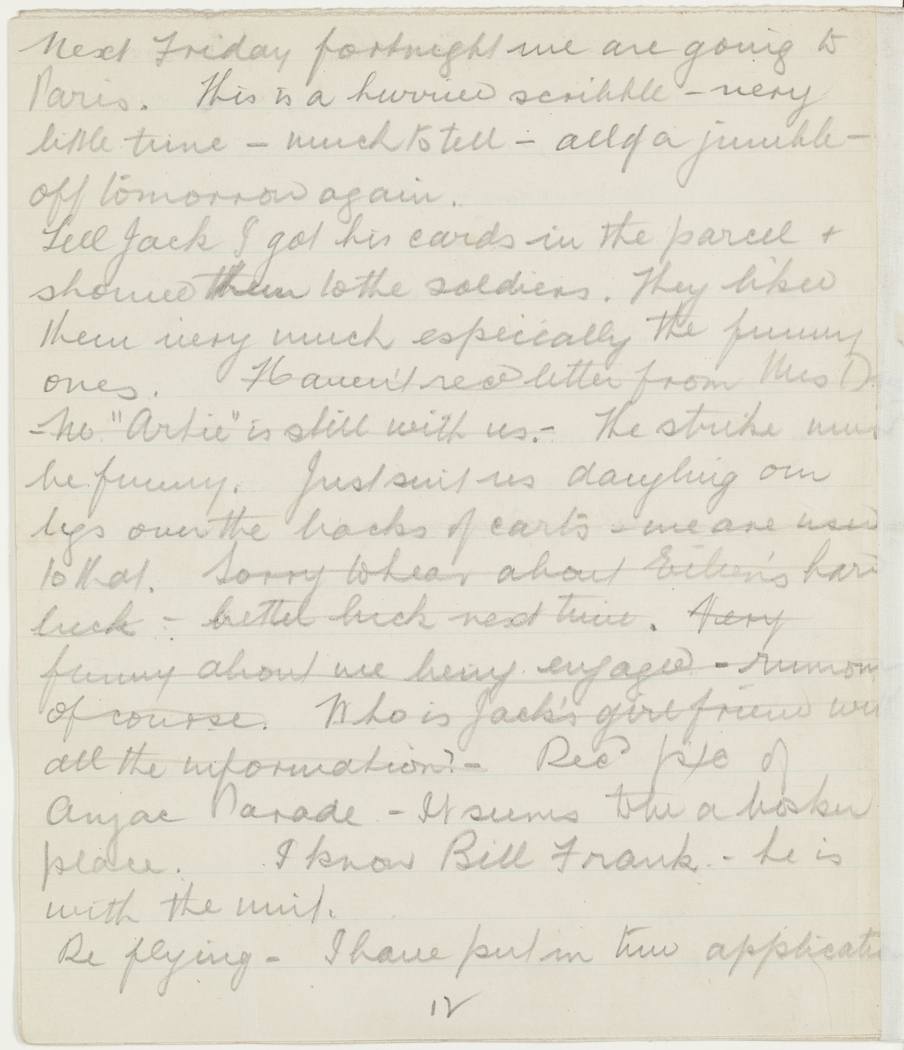 Next Friday fortnight we are going to
Paris. This is a hurried scribble - very
little time - much to tell - all of a jumble -
off tomorrow again.
Tell Jack I got his cards in the parcel +
showed them to the soldiers. They liked
them very much especially the funny
ones. Haven't recd letter from Mrs D
- No "Artie" is still with us. - The strike must
be funny. Just suit us dangling our
legs over the backs of carts - we are used
to that. Sorry to hear about Eileen's hard
luck - better luck next time. Very
funny about me being engaged - rumour
of course. Who is Jack's girl friend with
all the information? - Recd p/c of
Anzac Parade - It seems to be a bosker
place. I know Bill Frank - he is
with the unit.
Re flying - I have put in two applicatio
12